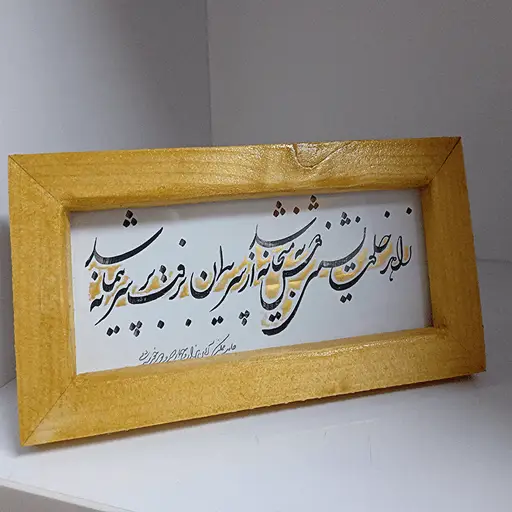 زاهد خلوت نشین دوش به میخانه شد
از سر پیمان برفت بر سر پیمانه شد